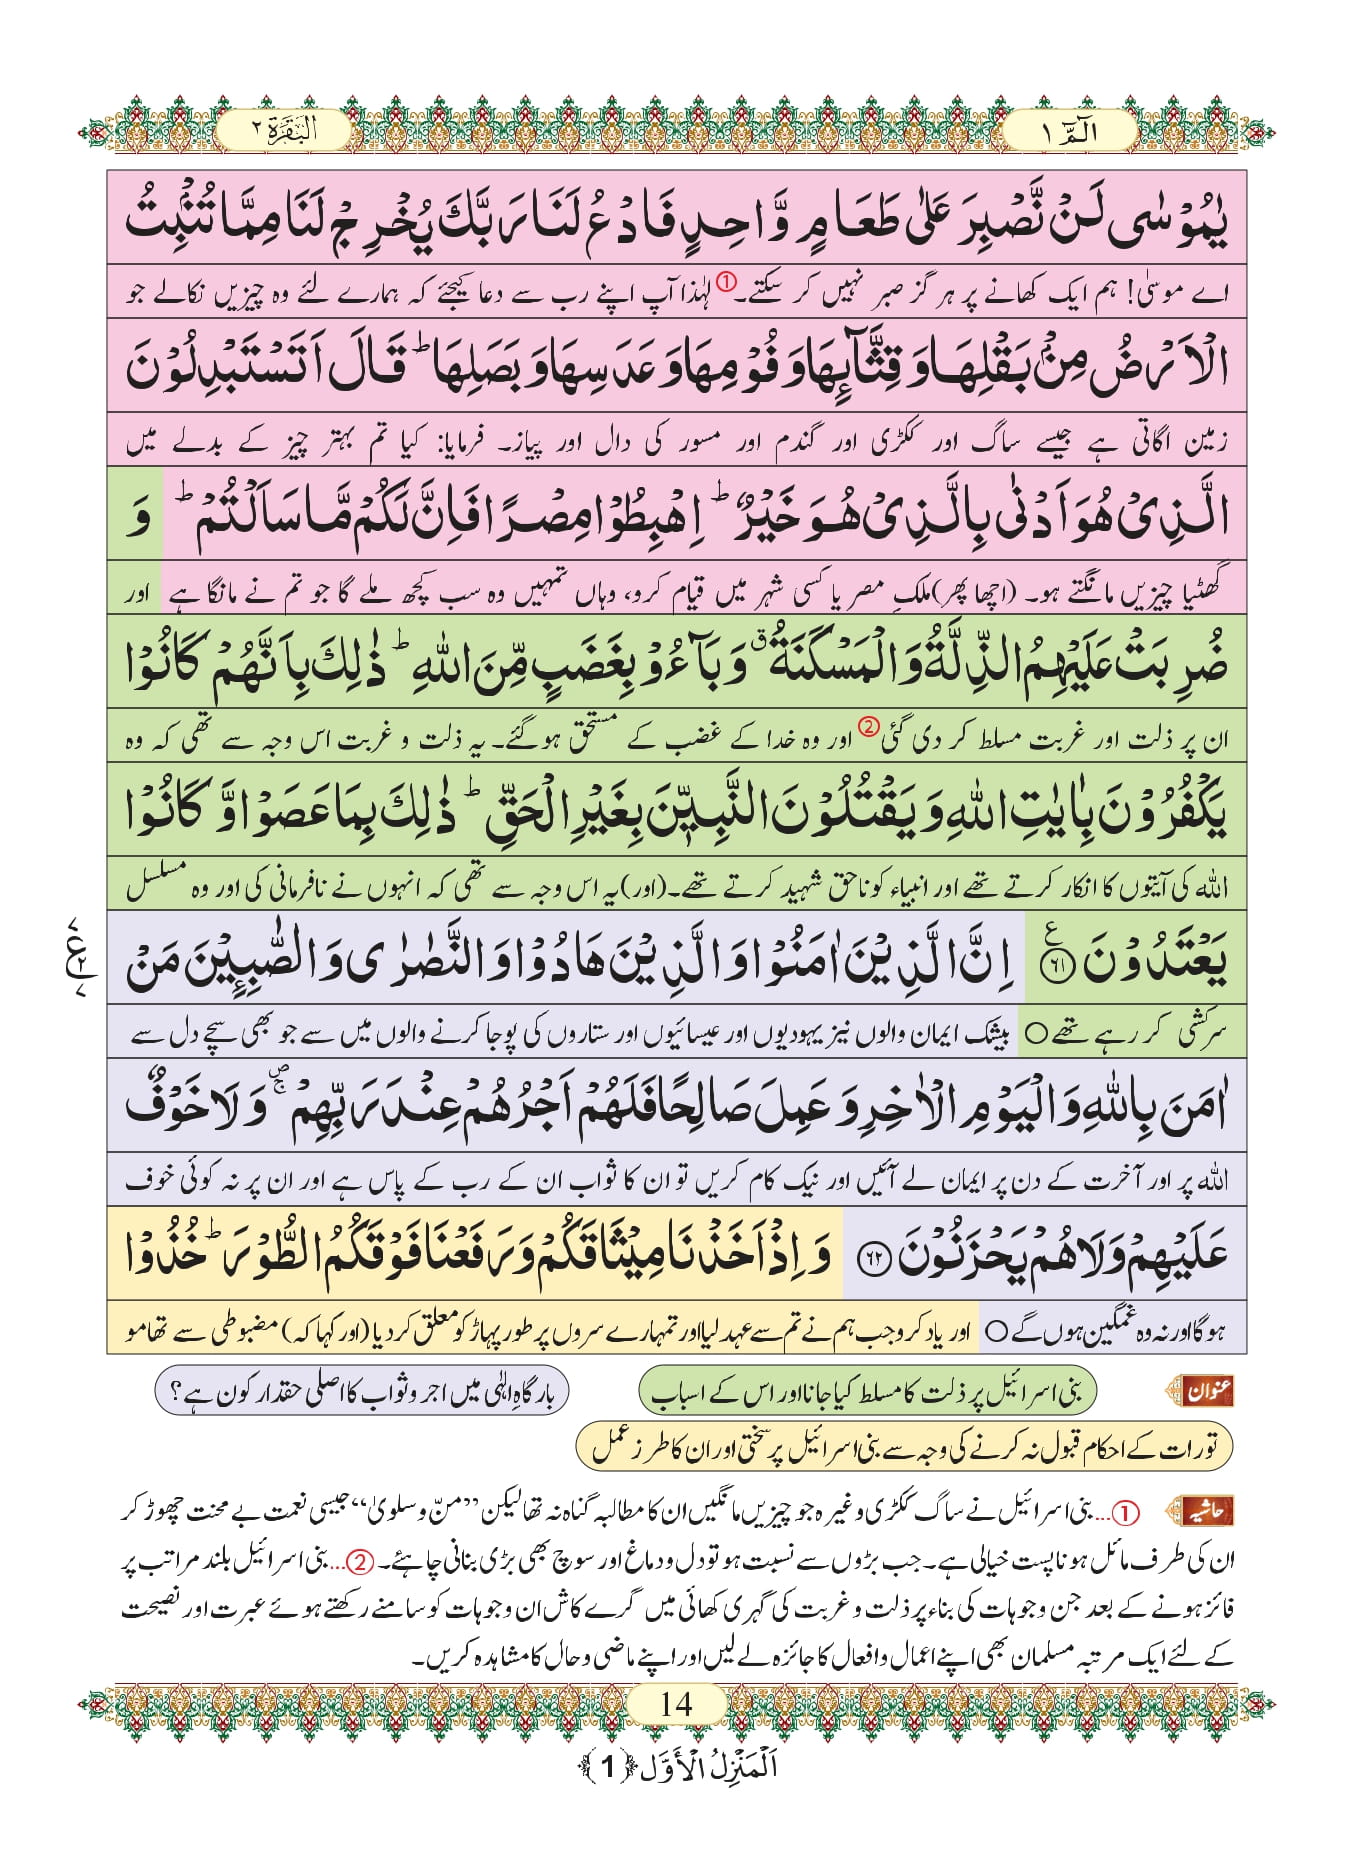 الٓمّٓ ۱
اَلْبَقَرَة ۲
یٰمُوْسٰى لَنْ نَّصْبِرَ عَلٰى طَعَامٍ وَّاحِدٍ فَادْعُ لَنَا رَبَّكَ یُخْرِجْ لَنَا مِمَّا تُنْۢبِتُ
اے موسیٰ! ہم ایک کھانے پر ہر گز صبر نہیں کر سکتے۔① لہٰذا آپ اپنے رب سے دعا کیجئے کہ ہمارے لئے وہ چیزیں نکالے جو
الْاَرْضُ مِنْۢ بَقْلِهَا وَ قِثَّآىٕهَا وَ فُوْمِهَا وَ عَدَسِهَا وَ بَصَلِهَاؕ قَالَ اَتَسْتَبْدِلُوْنَ
زمین اگاتی ہے جیسے ساگ اور ککڑی اور گندم اور مسور کی دال اور پیاز۔ فرمایا: کیا تم بہتر چیز کے بدلے میں
الَّذِیْ هُوَ اَدْنٰى بِالَّذِیْ هُوَ خَیْرٌؕ اِهْبِطُوْا مِصْرًا فَاِنَّ لَكُمْ مَّا سَاَلْتُمْؕ وَ
گھٹیا چیزیں مانگتے ہو۔ (اچھا پھر) ملکِ مصر یا کسی شہر میں قیام کرو، وہاں تمہیں وہ سب کچھ ملے گا جو تم نے مانگا ہے اور
ضُرِبَتْ عَلَیْهِمُ الذِّلَّةُ وَ الْمَسْكَنَةُۗ وَ بَآءُوْ بِغَضَبٍ مِّنَ اللّٰهِؕ ذٰلِكَ بِاَنَّهُمْ كَانُوْا
ان پر ذلت اور غربت مسلط کر دی گئی② اور وہ خدا کے غضب کے مستحق ہوگئے۔ یہ ذلت و غربت اس وجہ سے تھی کہ وہ
یَكْفُرُوْنَ بِاٰیٰتِ اللّٰهِ وَ یَقْتُلُوْنَ النَّبِیّٖنَ بِغَیْرِ الْحَقِّؕ ذٰلِكَ بِمَا عَصَوْا وَّ كَانُوْا
اللہ کی آیتوں کا انکار کرتے تھے اور انبیاء کو ناحق شہید کرتے تھے۔ (اور) یہ اس وجہ سے تھی کہ انہوں نے نافرمانی کی اور وہ مسلسل
یَعْتَدُوْنَ۠ ﴿۶۱﴾ اِنَّ الَّذِیْنَ اٰمَنُوْا وَ الَّذِیْنَ هَادُوْا وَ النَّصٰرٰى وَ الصّٰبِـٕیْنَ مَنْ
سرکشی کر رہے تھے○ بیشک ایمان والوں نیز یہودیوں اور عیسائیوں اور ستاروں کی پوجا کرنے والوں میں سے جو بھی سچے دل سے
اٰمَنَ بِاللّٰهِ وَ الْیَوْمِ الْاٰخِرِ وَ عَمِلَ صَالِحًا فَلَهُمْ اَجْرُهُمْ عِنْدَ رَبِّهِمْۚۖ وَ لَا خَوْفٌ
اللہ پر اور آخرت کے دن پر ایمان لے آئیں اور نیک کام کریں تو ان کا ثواب ان کے رب کے پاس ہے اور ان پر نہ کوئی خوف
عَلَیْهِمْ وَ لَا هُمْ یَحْزَنُوْنَ ﴿۶۲﴾ وَ اِذْ اَخَذْنَا مِیْثَاقَكُمْ وَ رَفَعْنَا فَوْقَكُمُ الطُّوْرَؕ خُذُوْا
ہوگا اور نہ وہ غمگین ہوں گے○ اور یاد کرو جب ہم نے تم سے عہد لیا اور تمہارے سروں پر طور پہاڑ کو معلق کردیا (اور کہا کہ) مضبوطی سے تھامو
عنوان بنی اسرائیل پر ذلت کا مسلط کیا جانا اور اس کے اسباب بارگاہِ الٰہی میں اجر و ثواب کا اصلی حقدار کون ہے؟
تورات کے احکام قبول نہ کرنے کی وجہ سے بنی اسرائیل پر سختی اور ان کا طرزِ عمل
حاشیہ ①... بنی اسرائیل نے ساگ ککڑی وغیرہ جو چیزیں مانگیں ان کا مطالبہ گناہ نہ تھا لیکن ”منّ و سلویٰ“ جیسی نعمت بے محنت چھوڑ کر
ان کی طرف مائل ہونا پست خیالی ہے۔ جب بڑوں سے نسبت ہو تو دل و دماغ اور سوچ بھی بڑی بنانی چاہئے۔ ②... بنی اسرائیل بلند مراتب پر
فائز ہونے کے بعد جن وجوہات کی بناء پر ذلت و غربت کی گہری کھائی میں گرے کاش ان وجوہات کو سامنے رکھتے ہوئے عبرت اور نصیحت
کے لئے ایک مرتبہ مسلمان بھی اپنے اعمال و افعال کا جائزہ لے لیں اور اپنے ماضی و حال کا مشاہدہ کریں۔
14
اَلْمَنْزِلُ الْاَوَّل ﴿1﴾